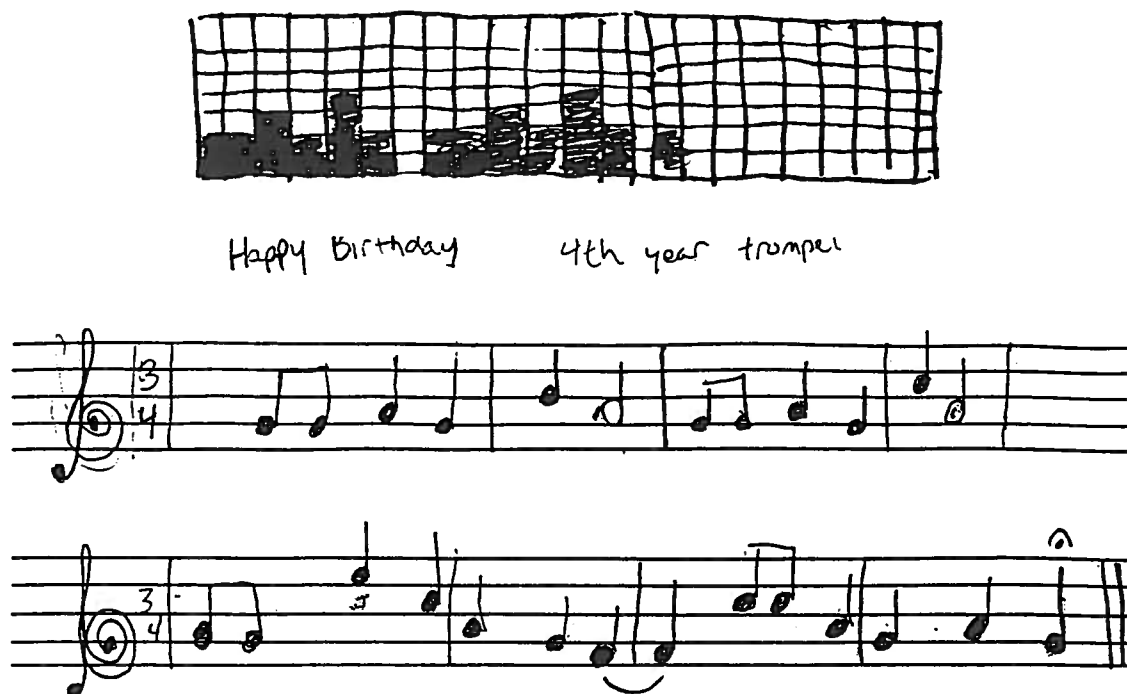 Happy Birthday 4th year trumpet
3
4
3
4